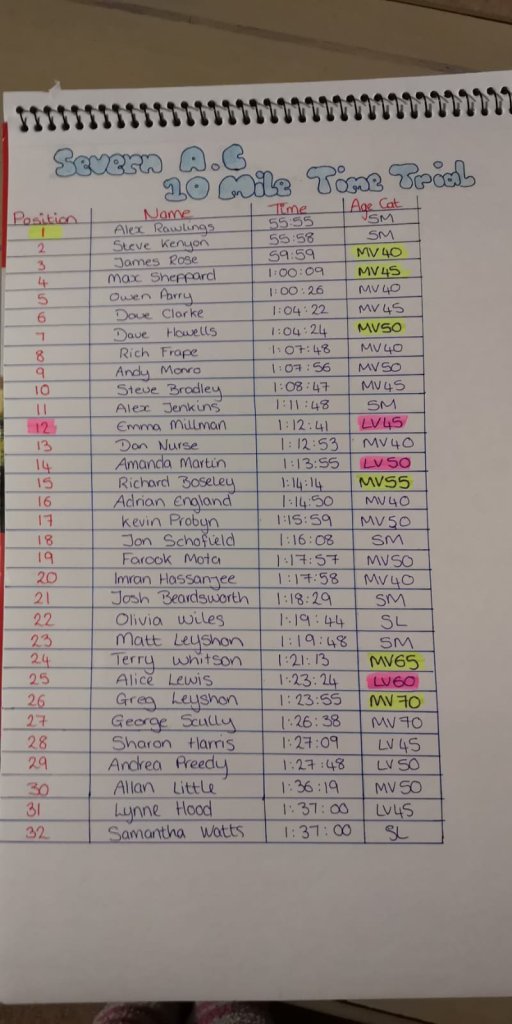 Severn A.C
10 Mile Time Trial
Position Name Time Age Cat
1 Alex Rawlings 55:55 SM
2 Steve Kenyon 55:58 SM
3 James Rose 59:59 MV40
4 Max Sheppard 1:00:09 MV45
5 Owen Parry 1:00:26 MV40
6 Dave Clarke 1:04:22 MV45
7 Dave Howells 1:04:24 MV50
8 Rich Frape 1:07:48 MV40
9 Andy Monro 1:07:56 MV50
10 Steve Bradley 1:08:47 MV45
11 Alex Jenkins 1:11:48 SM
12 Emma Millman 1:12:41 LV45
13 Dan Nurse 1:12:53 MV40
14 Amanda Martin 1:13:55 LV50
15 Richard Boseley 1:14:14 MV55
16 Adrian England 1:14:50 MV40
17 Kevin Probyn 1:15:59 MV50
18 Jon Schofield 1:16:08 SM
19 Farook Mota 1:17:57 MV50
20 Imran Hassanjee 1:17:58 MV40
21 Josh Beardsworth 1:18:29 SM
22 Olivia Wiles 1:19:44 SL
23 Matt Leyshon 1:19:48 SM
24 Terry Whitson 1:21:13 MV65
25 Alice Lewis 1:23:24 LV60
26 Greg Leyshon 1:23:55 MV70
27 George Scully 1:26:38 MV70
28 Sharon Harris 1:27:09 LV45
29 Andrea Preedy 1:27:48 LV50
30 Allan Little 1:36:19 MV50
31 Lynne Hood 1:37:00 LV45
32 Samantha Watts 1:37:00 SL